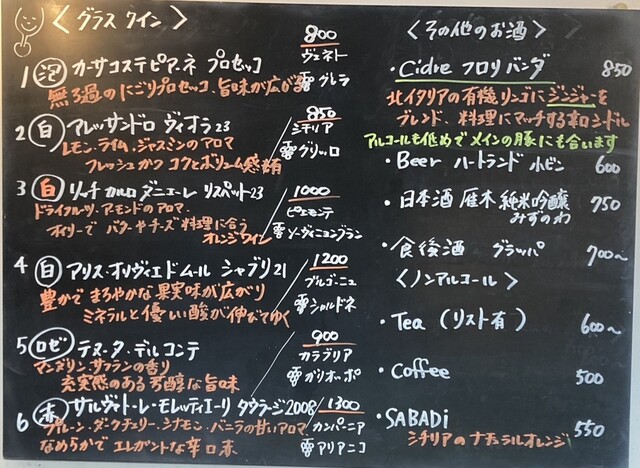 <グラスワイン>
1 泡 カーサコステピアーネ プロセッコ
無ろ過のにごりプロセッコ、旨味が広がる
800
ヴェネト
グレラ
2 白 アレッサンドロ ヴィオラ 23
レモン、ライム、ジャスミンのアロマ
フレッシュかつ コクとボリューム感有
850
シチリア
グリッロ
3 白 リッチ カルロ ダニエーレ リスペット 23
ドライフルーツ、アーモンドのアロマ
オイリーで バターやチーズ料理に合う
オレンジワイン
1000
ピエモンテ
ソーヴィニョンブラン
4 白 アリス・オリヴィエ ドムール シャブリ 21
豊かで まろやかな果実味が広がり
ミネラルと優しい酸が伸びてゆく
1200
ブルゴーニュ
シャルドネ
5 ロゼ テヌータ・デルコンテ
マンダリン、サフランの香り
充実感のある芳醇な旨味
900
カラブリア
ガリオッポ
6 赤 サルヴァトーレ・モレッティエーリ タウラージ 2008
プルーン・ダークチェリー・シナモン・バニラの甘いアロマ
なめらかで エレガントな辛口赤
1300
カンパーニア
アリアニコ
<その他のお酒>
・Cidre フロリバンダ 850
北イタリアの有機リンゴにジンジャーを
ブレンド、料理にマッチする辛口シードル
アルコールも低めでメインの豚にも合います
・Beer ハートランド 小ビン 600
・日本酒 雁木 純米吟醸 750
みずのわ
・食後酒 グラッパ 700〜
<ノンアルコール>
・Tea (リスト有) 600〜
・Coffee 500
・SABADi 550
シチリアのナチュラルオレンジ